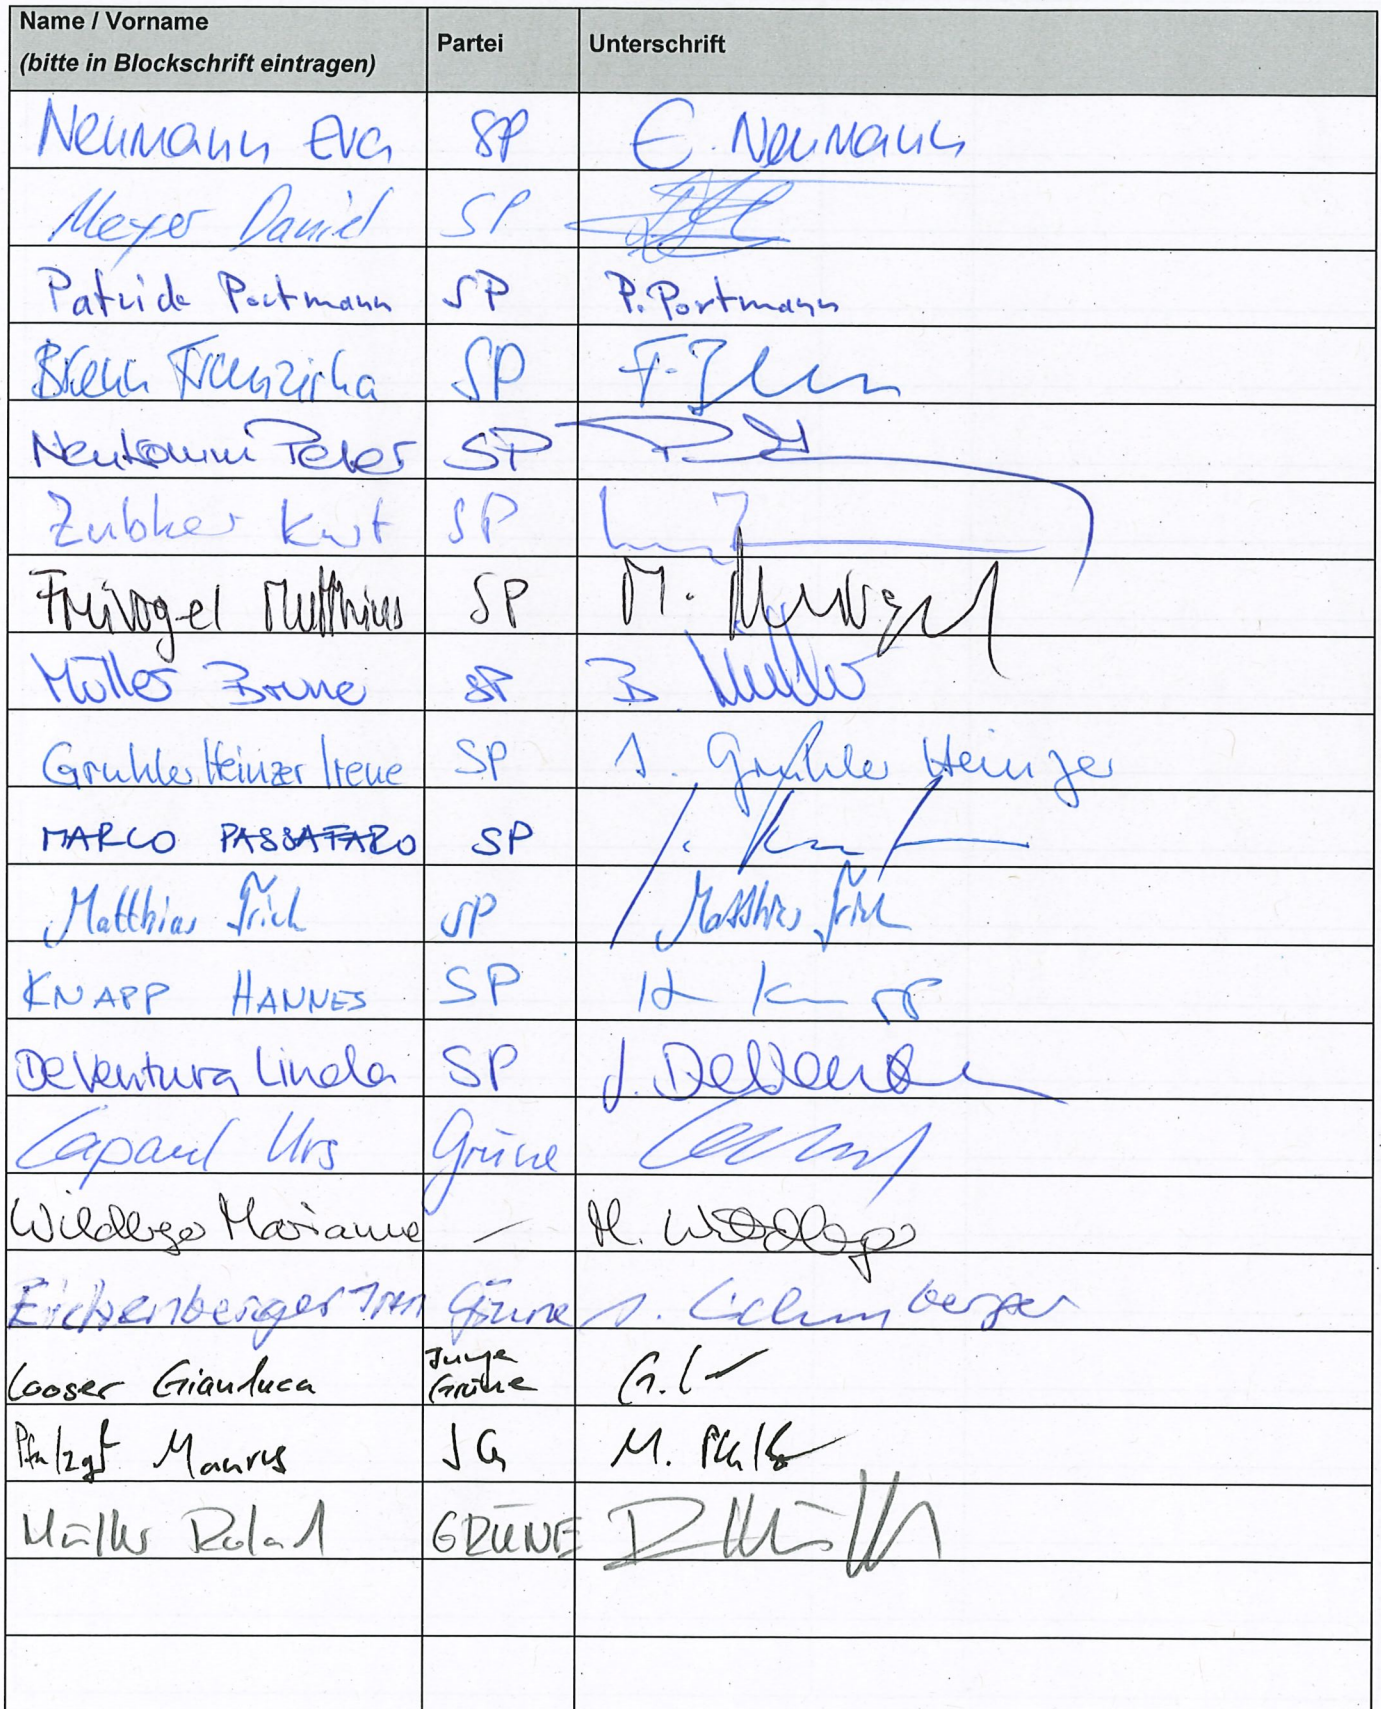 Name / Vorname
(bitte in Blockschrift eintragen)
Partei
Unterschrift
Neumann Eva SP E. Neumann
Meyer Daniel SP
Patrick Portmann SP P. Portmann
Brenn Franziska SP F. Brenn
Neukomm Peter SP
Zubler Kurt SP
Freivogel Matthias SP M. Freivogel
Müller Bruno SP B. Müller
Gruhler Heinzer Irene SP I. Gruhler Heinzer
MARCO PASSAFARO SP
Matthias Frick SP Matthias Frick
KNAPP HANNES SP H. Knapp
De Ventura Linda SP L. De Ventura
Capaul Urs Grüne
Wildberger Marianne – M. Wildberger
Eichenberger Iren Grüne I. Eichenberger
Looser Gianluca Junge Grüne G. L
Pfalzgraf Maurus JG M. Pfalz
Müller Roland GRÜNE R Müller